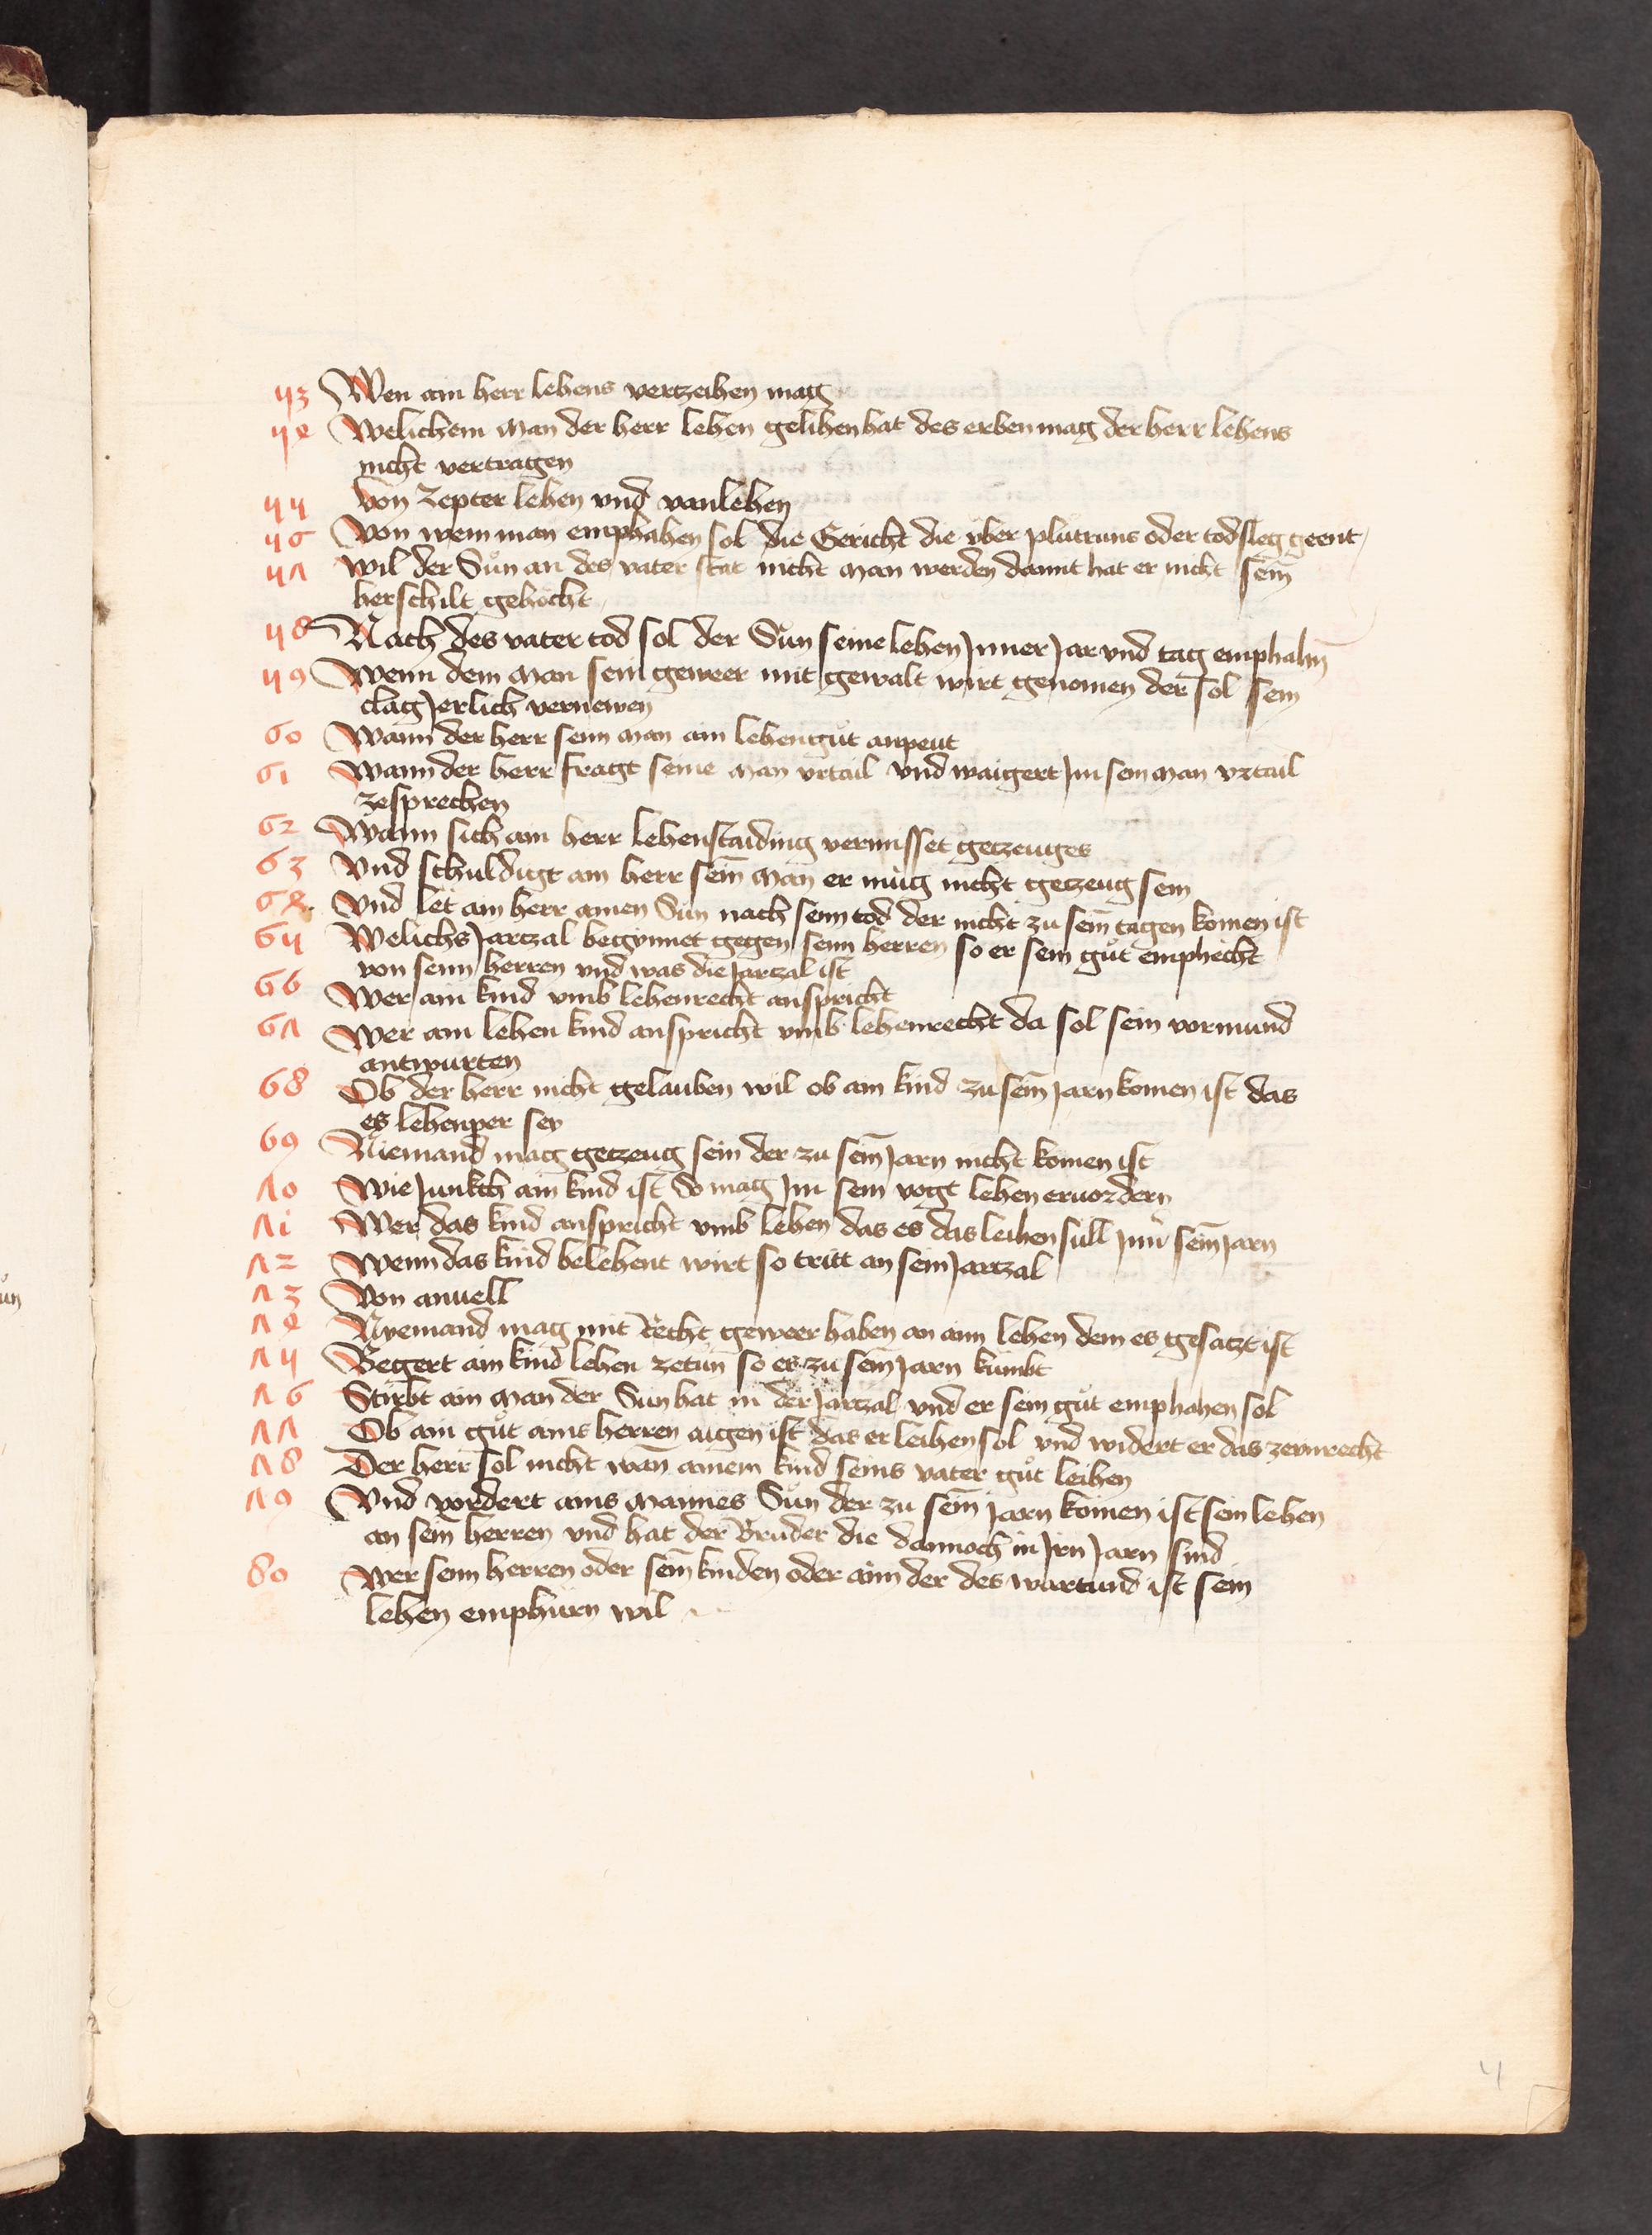 53 Wen ain herr lehens vertzeihen mag
54 Welichem man der herr lehen gelihen hat des erben mag der herr lehens
nicht vertragen
55 Von Zepter lehen vnd vanlehen
56 Von wem man emphahen sol die Gericht die vber plutruns oder todsleg geent
57 Wil der Sůn an des vater stat nicht man werden damit hat er nicht sein̄
herschilt gehocht
58 Nach des vater tod sol der Sůn seine lehen Inner Jar vnd tag emphahn̄
59 Wenn dem man sein gewer mit gewalt wirt genomen der sol sein
clag Jerlich vernewen
60 Wann der herr seim man ain lehengůt anpeut
61 Wann der herr fragt seine man vrtail vnd waigert Im sein man vrtail
zesprechen
62 Wann sich ain herr lehenstaiding vermisset getzeuges
63 Vnd schuldigt ain herr sein̄ man er müg nicht getzeug sein
64 Vnd let ain herr ainen Sůn nach seim tod der nicht zu sein̄ tagen komen ist
65 Welichs Jartzal begynnet gegen seim herren so er sein gůt emphecht
von seim herren vnd was die Jartzal ist
66 Wer ain kind vmb lehenrecht anspricht
67 Wer ain lehen kind anspricht vmb lehenrecht da sol sein vormund
antwurten
68 Ob der herr nicht gelauben wil ob ain kind zu sein̄ Jarn komen ist das
es lehenper sey
69 Niemand mag getzeug sein der zu sein̄ Jarn nicht komen ist
70 Wie Junkch ain kind ist So mag Im sein vogt lehen eruordern
71 Wer das kind anspricht vmb lehen das es das leihen süll Inn̄ sein̄ Jarn
72 Wenn das kind belehent wirt so tritt an sein Jartzal
73 Von anuell
74 Nyemand mag mit Recht gewer haben an aim lehen dem es gesatzt ist
75 Begert ain kind lehen zetun so es zu sein̄ Jarn kumbt
76 Stirbt ain man der Sun hat in der Jartzal vnd er sein gůt emphahen sol
77 Ob ain gůt ains herren aigen ist das er leihen sol vnd widert er das zevnrecht
78 Der herr sol nicht wan̄ ainem kind seins vater gůt leihen
79 Vnd vordert ains mannes Sůn der zu sein̄ Jarn komen ist sein lehen
an sein herren vnd hat der Bruder die dannoch in Irn Jarn sind
80 Wer seim herren oder sein̄ kinden oder aim der des wartund ist sein
lehen emphürn wil
4